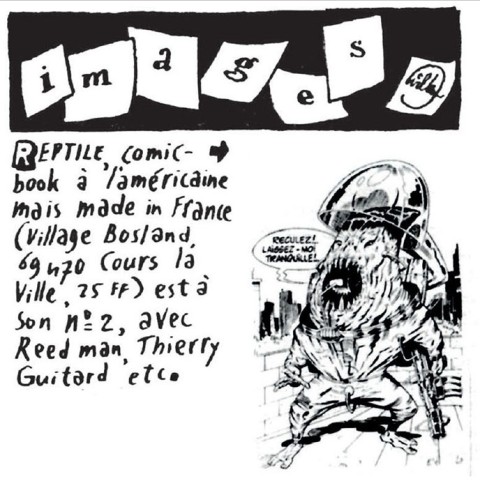 images
REPTILE, comic-
book à l'américaine
mais made in France
(Village Bosland,
69470 Cours la
Ville, 25 FF) est à
son nº 2, avec
Reed man, Thierry
Guitard etc.
RECULEZ!
LAISSEZ-MOI
TRANQUILLE!